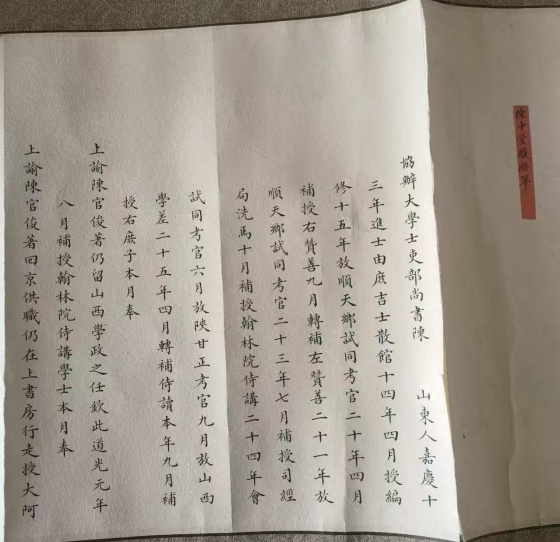 陳中堂履歷單
協辦大學士吏部尚書陳 山東人嘉慶十
三年進士由庶吉士散館十四年四月授編
修十五年放順天鄉試同考官二十年四月
補授右贊善九月轉補左贊善二十一年放
順天鄉試同考官二十三年七月補授司經
局洗馬十月補授翰林院侍講二十四年會
試同考官六月放陝甘正考官九月放山西
學差二十五年四月轉補侍讀本年九月補
授右庶子本月奉
上諭陳官俊著仍留山西學政之任欽此道光元年
八月補授翰林院侍講學士本月奉
上諭陳官俊著回京供職仍在上書房行走授大阿